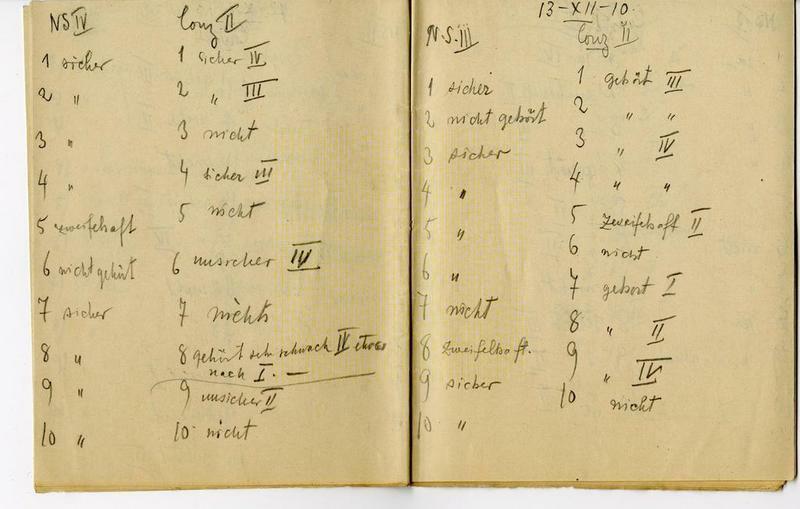 NS IV
1 sicher
2 "
3 "
4 "
5 zweifelhaft
6 nicht gehört
7 sicher
8 "
9 "
10 "
Conz II
1 sicher IV
2 " III
3 nicht
4 sicher III
5 nicht
6 unsicher IV
7 nichts
8 gehört sehr schwach IV etwas
nach I. —
9 unsicher II
10 nicht
13-XII-10
N.S. III
1 sicher
2 nicht gehört
3 sicher
4 "
5 "
6 "
7 nicht
8 zweifelhaft.
9 sicher
10 "
Conz II
1 gehört III
2 " "
3 " IV
4 " "
5 zweifelhaft II
6 nicht
7 gehört I
8 " II
9 " IV
10 nicht